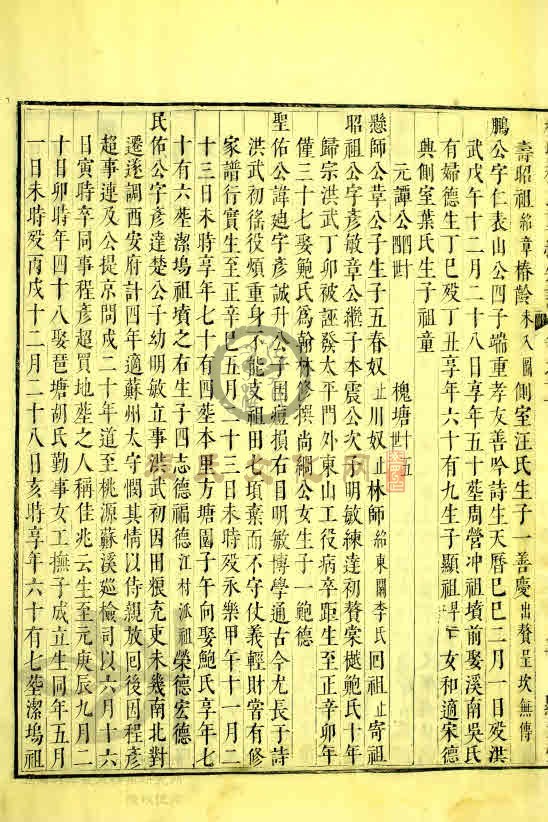 壽昭祖紹章椿齡未入圖側室汪氏生子一善慶出贅呈坎無傳
鵬公字仁表山公四子端重孝友善吟詩生天曆己巳二月一日殁洪
武戊午十二月二十八日享年五十塟周營冲祖墳前娶溪南吳氏
有婦德生丁巳殁丁丑享年六十有九生子顯祖早亡女和適宋德
興側室葉氏生子祖童
元譚公四世 槐塘世五
懸師公草公子生子五春奴止川奴止林師紹東關李氏回祖止寄祖
昭祖公字彥敏章公繼子本震公次子明敏練達初贅棠樾鮑氏十年
歸宗洪武丁卯被誣發太平門外東山工役病卒距生至正辛卯年
僅三十七娶鮑氏爲翰林修撰尚綱公女生子一鮑德
聖佑公諱廸字彥誠升公子因痘損右目明敏博學通古今尤長于詩
洪武初徭役煩重身不能支祖田七頃棄而不守仗義輕財嘗有修
家譜行實生至正辛巳五月二十三日未時殁永樂甲午十一月二
十三日未時享年七十有四塟本里方塘園子午向娶鮑氏享年七
十有六塟潔塢祖墳之右生子四志德福德江村派祖榮德宏德
民佑公字彥達楚公子幼明敏立事洪武初因田粮充吏未幾南北對
遷遂調西安府計四年適蘇州太守憫其情以侍親放回後因程彥
超事連及公提京問戍二十年道至桃源蘇溪巡檢司以六月十六
日寅時卒同事程彥超買地塟之人稱佳兆云生至元庚辰九月二
十日卯時年四十八娶琶塘胡氏勤事女工撫子成立生同年五月
一日未時殁丙戌十二月二十八日亥時享年六十有七塟潔塢祖